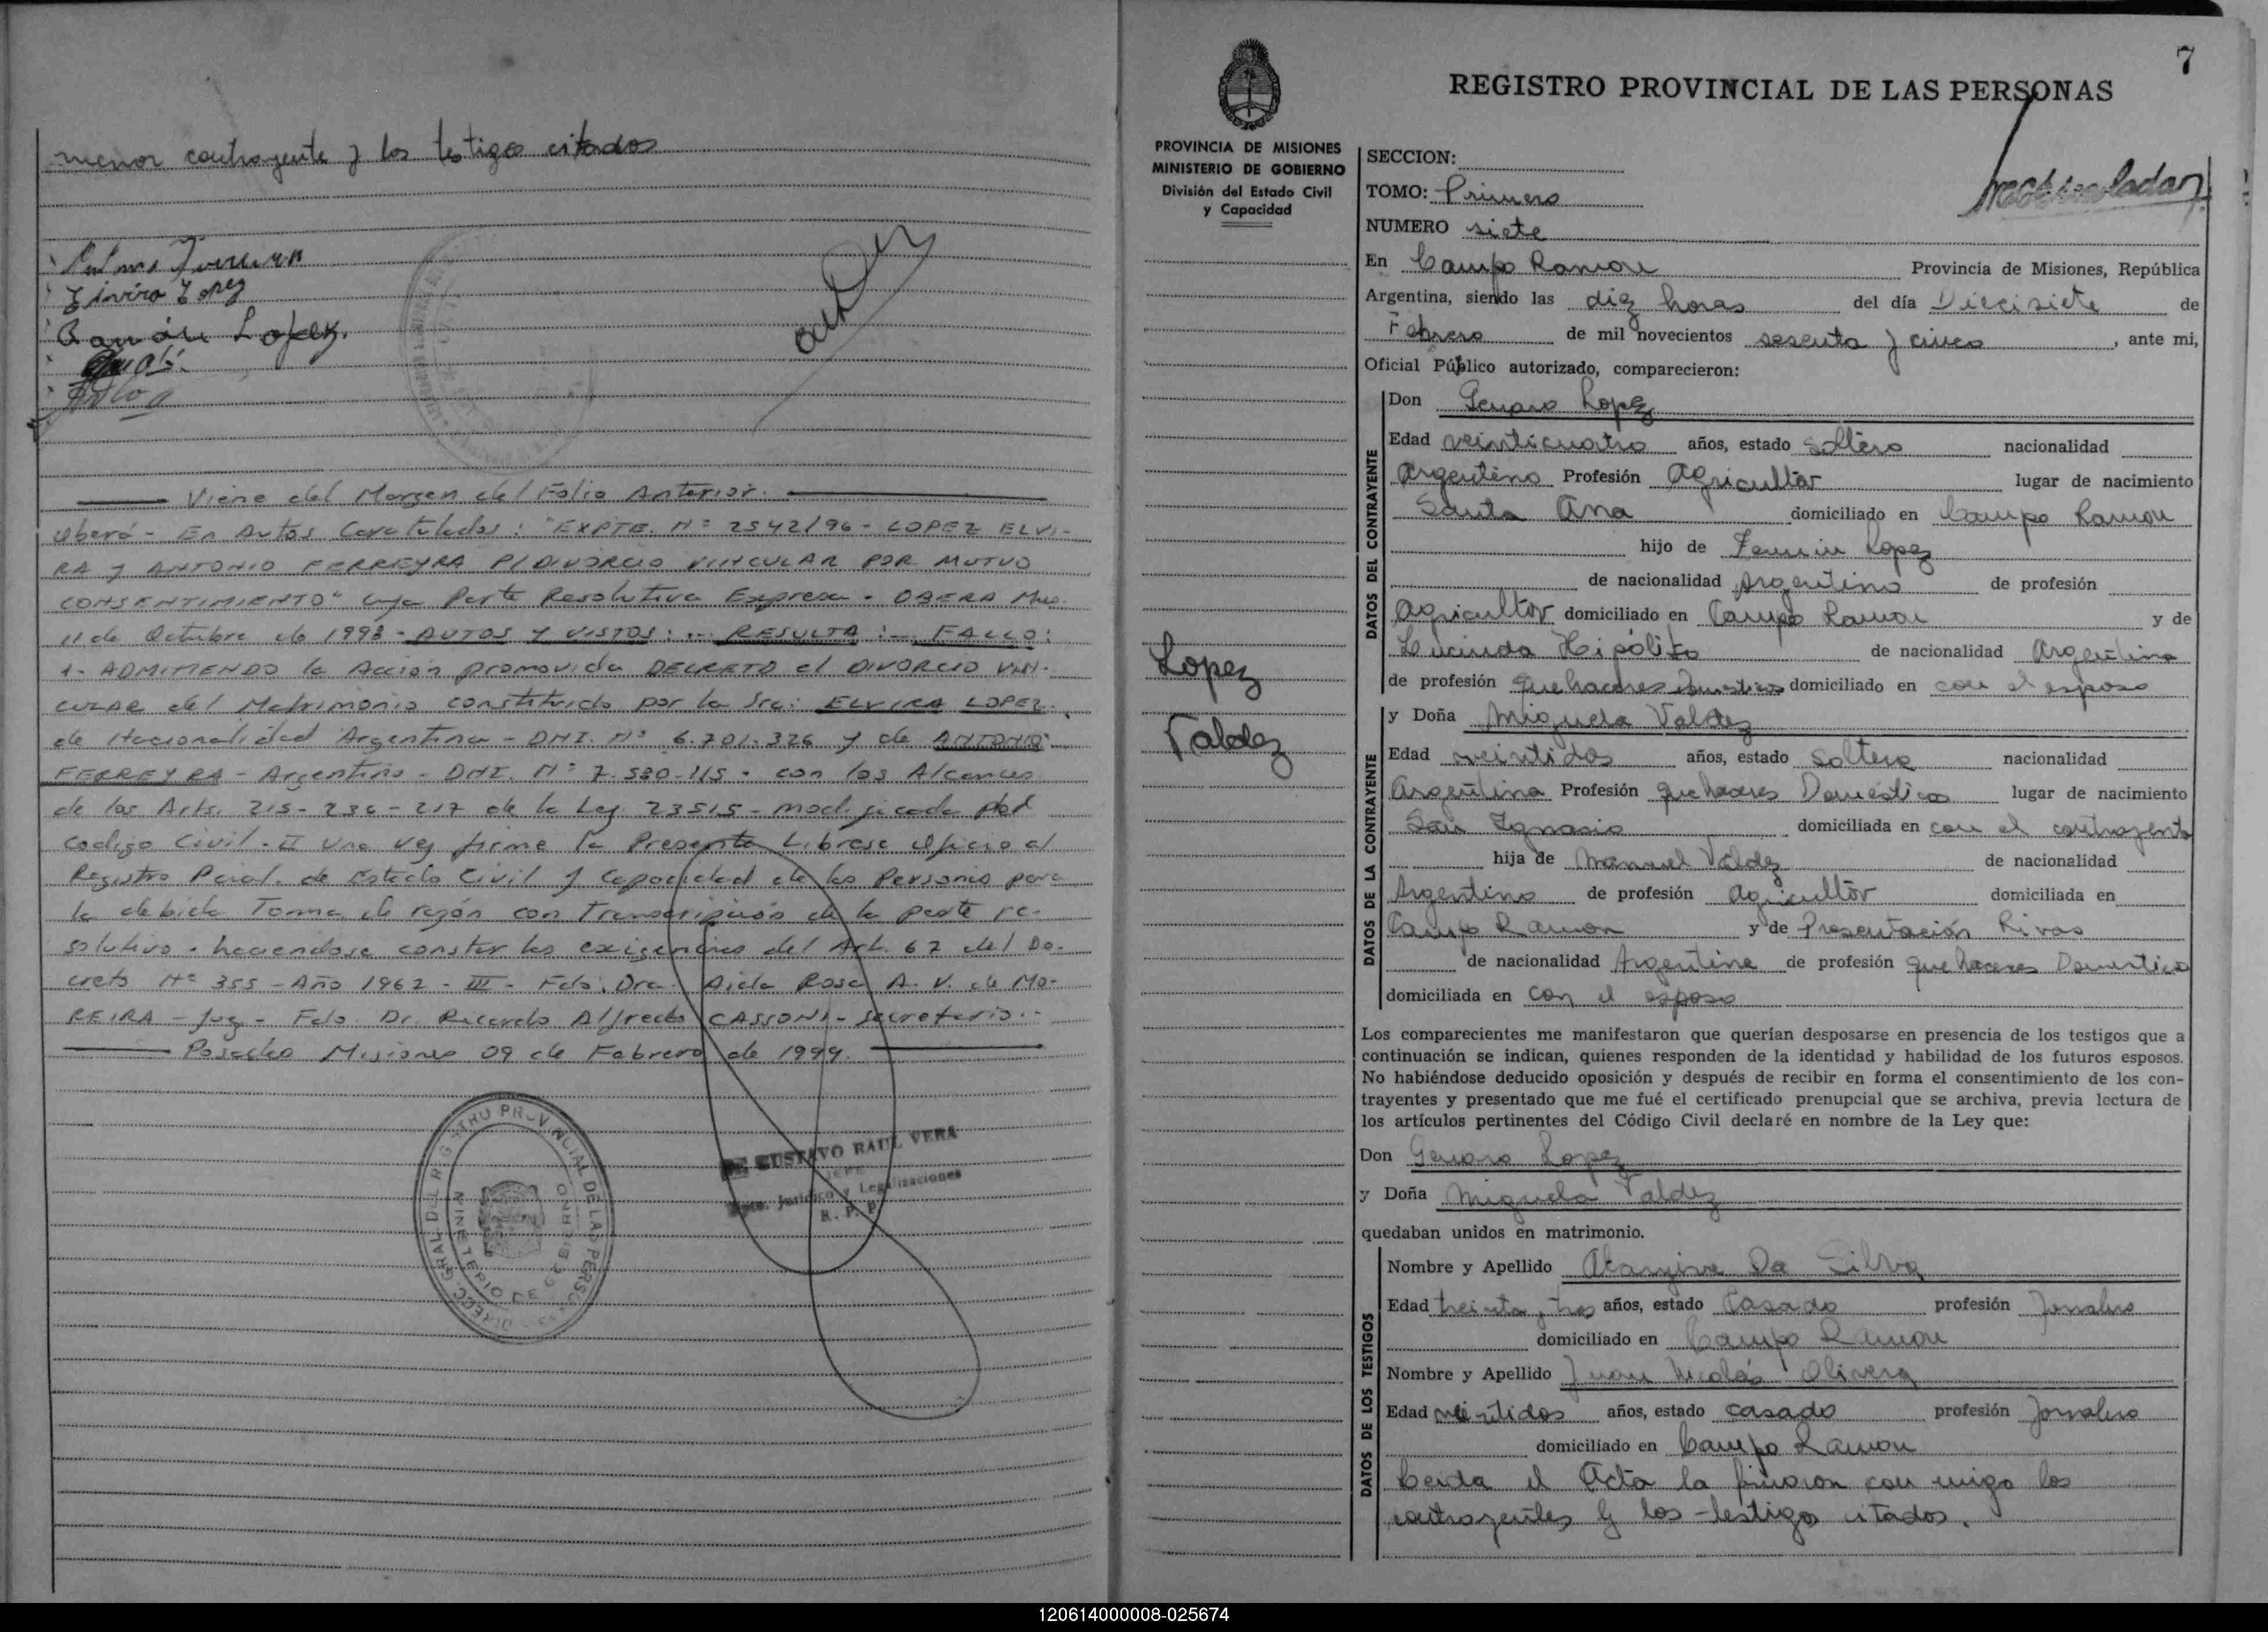 menor contrayente y los testigos citados
Elvira Lopez
Ramón Lopez.
Viene del Margen del Folio Anterior.
Oberá - En Autos Caratulados: "EXPTE. Nº 2542/96 - LOPEZ ELVI-
RA y ANTONIO FERREYRA P/DIVORCIO VINCULAR POR MUTUO
CONSENTIMIENTO" cuya Parte Resolutiva Expresa - OBERA Mnes.
11 de Octubre de 1998 - AUTOS Y VISTOS: ... RESULTA: ... FALLO:
1- ADMITIENDO la Acción promovida DECRETO el DIVORCIO VIN-
CULAR del Matrimonio constituido por la Sra: ELVIRA LOPEZ
de Nacionalidad Argentina - DNI. Nº 6.701.326 y de ANTONIO
FERREYRA - Argentino - DNI. Nº 7.580.115 - con los Alcances
de los Arts. 215 - 236 - 217 de la Ley 23515 - modificada del
Codigo Civil - II Una vez firme la Presente Librese Oficio al
Registro Pcial. de Estado Civil y Capacidad de las Personas para
la debida Toma de razón con Transcripción de la parte re-
solutiva - haciendose constar las exigencias del Art. 67 del De-
creto Nº 355 - Año 1962 - III - Fdo: Dra. Aida Rosa A. V. de MO-
REIRA - Juez - Fdo. Dr. Ricardo Alfredo CASSONI - secretario.-
Posadas Misiones 09 de Febrero de 1999.
DIRECC. GRAL. DEL REGISTRO PROVINCIAL DE LAS PERSONAS
MINISTERIO DE GOBIERNO
GUSTAVO RAUL VERA
JEFE
Dpto. Jurídico y Legalizaciones
R. P. P.
7
REGISTRO PROVINCIAL DE LAS PERSONAS
PROVINCIA DE MISIONES
MINISTERIO DE GOBIERNO
División del Estado Civil
y Capacidad
Lopez
Valdez
SECCION:
TOMO: Primero
NUMERO siete
En Campo Ramon Provincia de Misiones, República
Argentina, siendo las diez horas del día Diecisiete de
Febrero de mil novecientos sesenta y cinco, ante mi,
Oficial Público autorizado, comparecieron:
DATOS DEL CONTRAYENTE
Don Genaro Lopez
Edad veinticuatro años, estado soltero nacionalidad
Argentino Profesión Agricultor lugar de nacimiento
Santa Ana domiciliado en Campo Ramon
hijo de Fermin Lopez
de nacionalidad Argentino de profesión
Agricultor domiciliado en Campo Ramon y de
Lucinda Hipólito de nacionalidad Argentina
de profesión quehaceres Domesticos domiciliado en con el esposo
DATOS DE LA CONTRAYENTE
y Doña Miguela Valdez
Edad veintidos años, estado soltera nacionalidad
Argentina Profesión quehaceres Domésticos lugar de nacimiento
San Ignacio domiciliada en con el contrayente
hija de Manuel Valdez de nacionalidad
Argentino de profesión Agricultor domiciliada en
Campo Ramon y de Presentación Rivas
de nacionalidad Argentina de profesión quehaceres Domesticos
domiciliada en con el esposo
Los comparecientes me manifestaron que querían desposarse en presencia de los testigos que a
continuación se indican, quienes responden de la identidad y habilidad de los futuros esposos.
No habiéndose deducido oposición y después de recibir en forma el consentimiento de los con-
trayentes y presentado que me fué el certificado prenupcial que se archiva, previa lectura de
los artículos pertinentes del Código Civil declaré en nombre de la Ley que:
Don Genaro Lopez
y Doña Miguela Valdez
quedaban unidos en matrimonio.
DATOS DE LOS TESTIGOS
Nombre y Apellido Da Silva
Edad treinta y tres años, estado Casado profesión Jornalero
domiciliado en Campo Ramon
Nombre y Apellido Juan Nicolás Olivera
Edad veintidos años, estado casado profesión Jornalero
domiciliado en Campo Ramon
Leida el Acta la firmaron con migo los
contrayentes y los testigos citados.
120614000008-025674